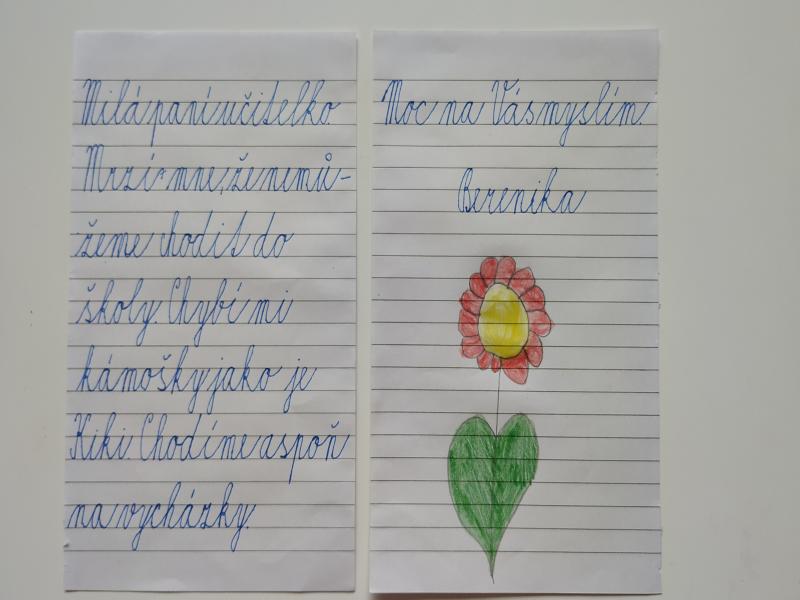 Milá paní učitelko
Mrzí mne, že nemů-
žeme chodit do
školy. Chybí mi
kámošky jako je
Kiki. Chodíme aspoň
na vycházky.
Moc na Vás myslím.
Berenika